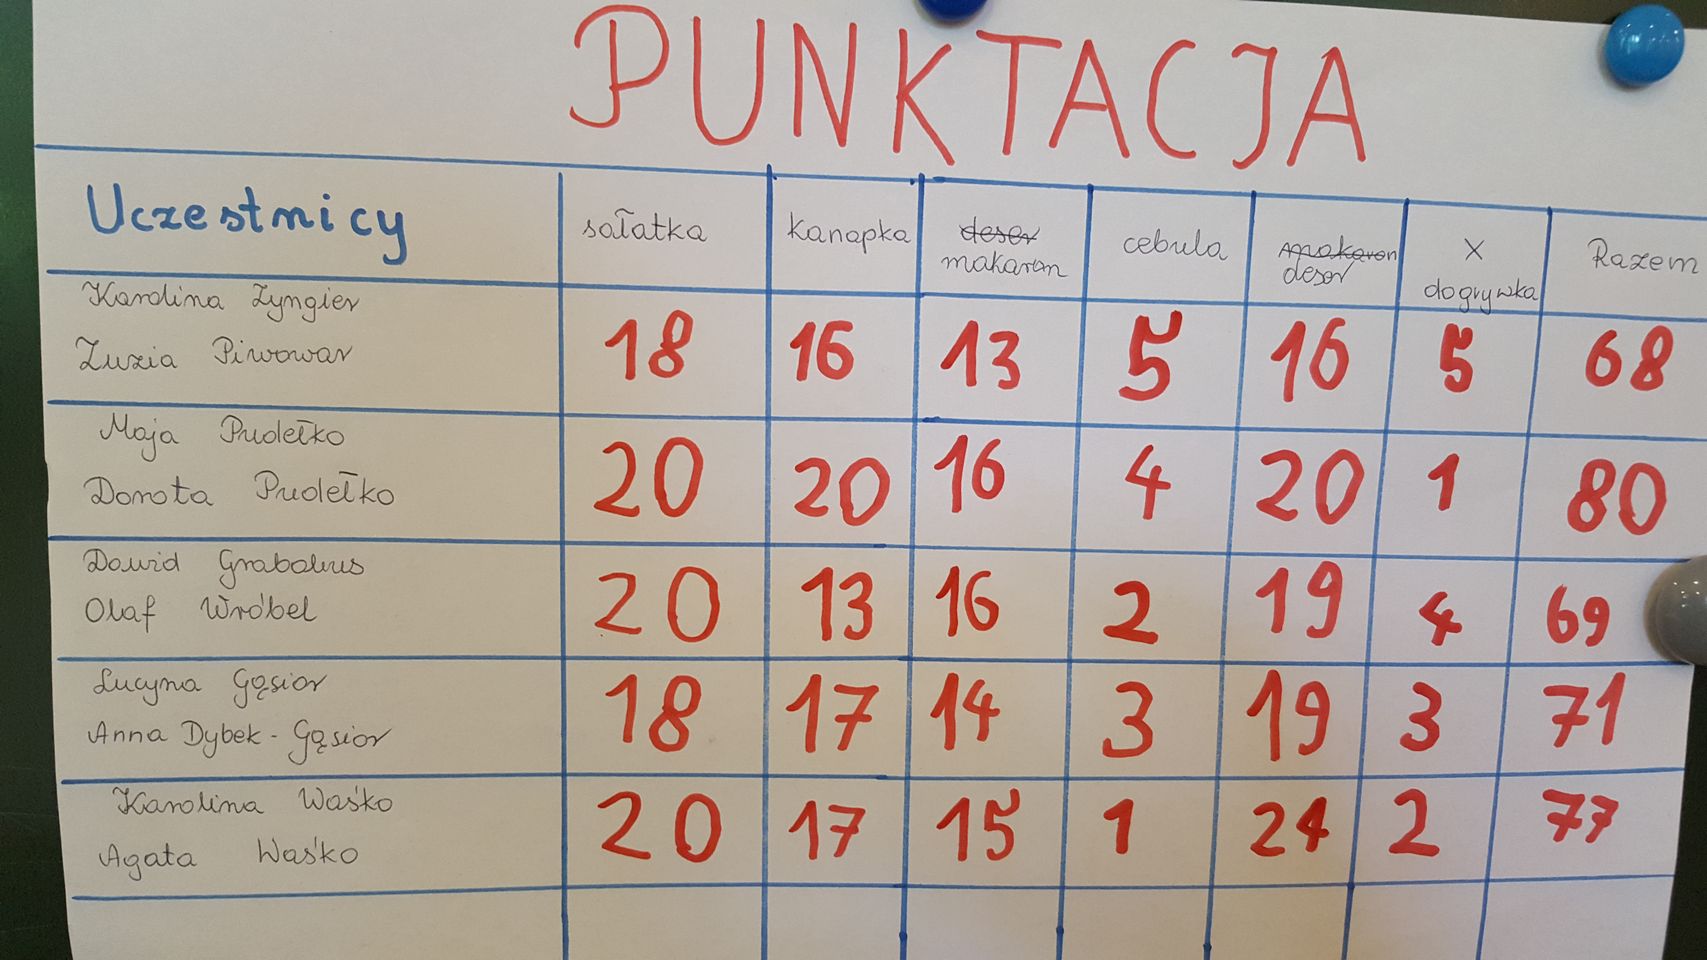 PUNKTACJA
Uczestnicy sałatka kanapka deser makaron cebula makaron deser X dogrywka Razem
Karolina Zyngier
Zuzia Piwowar 18 16 13 5 16 5 68
Maja Pudełko
Dorota Pudełko 20 20 16 4 20 1 80
Dawid Grabalus
Olaf Wróbel 20 13 16 2 19 4 69
Lucyna Gąsior
Anna Dybek-Gąsior 18 17 14 3 19 3 71
Karolina Waśko
Agata Waśko 20 17 15 1 24 2 77